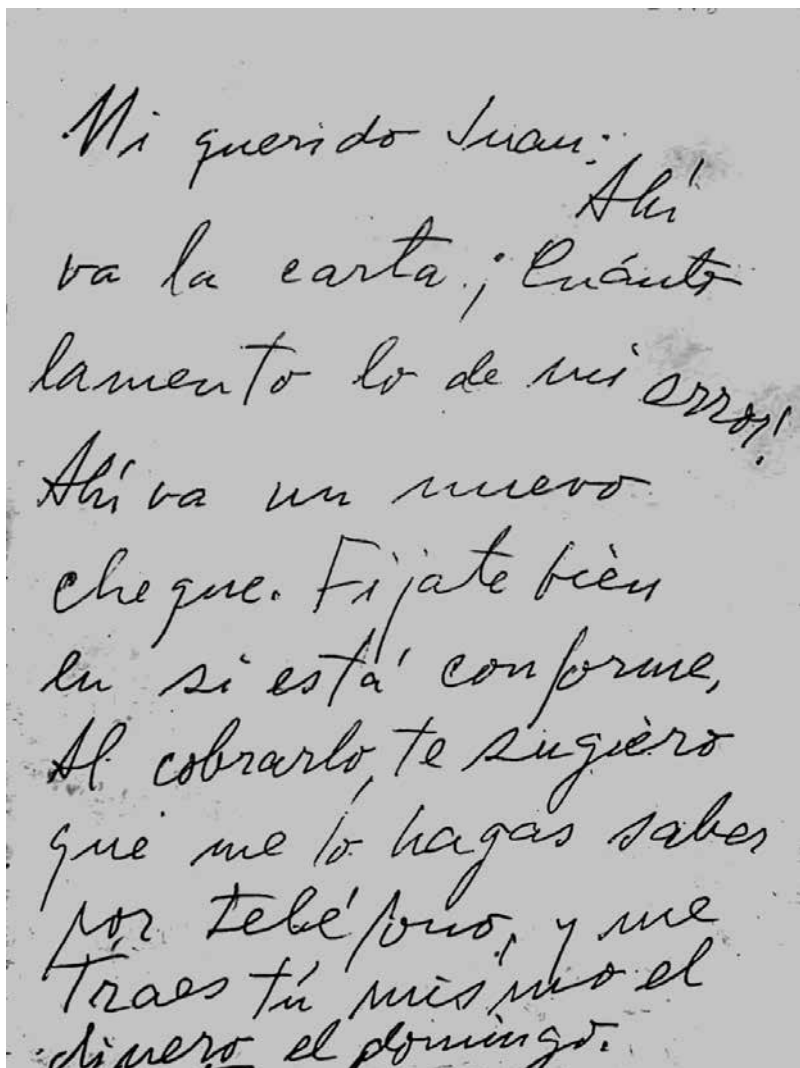 Mi querido Juan:
Ahí
va la carta. ¡Cuánto
lamento lo de mi error!
Ahí va un nuevo
cheque. Fíjate bien
en si está conforme,
Al cobrarlo, te sugiero
que me lo hagas saber
por teléfono, y me
traes tú mismo el
dinero el domingo.